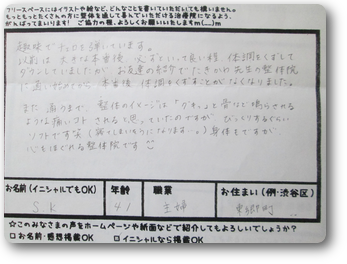 フリースペースにはイラストや絵など、どんなことを書いていただいても構いません。
もっともっとたくさんの方に整体を通して喜んでいただける治療院になるよう、
がんばってまいります！ ご協力の程、よろしくお願いいたしますm(__)m
趣味で
以前は大きな本番後、必ずといって良い程、体調をくずして
ダウンしていましたが お友達の紹介でたきかわ先生の整体院
に通い 本番後、体調をくずすことがなくなりました。
また 通うまで、整体のイメージは 「ボキッ」と 骨など鳴らされる
ような痛いソフト されると思っていたのですが びっくりするぐらい
ソフトです笑 (寝てしまいそうになります…。) 身体もですが
心もほぐれる整体院です
お名前(イニシャルでもOK) 年齢 職業 お住まい(例・渋谷区)
S.K 41 主婦 東郷町
☆このみなさまの声をホームページや紙面などで紹介してもよろしいでしょうか？
□お名前・感想掲載OK □イニシャルなら掲載OK